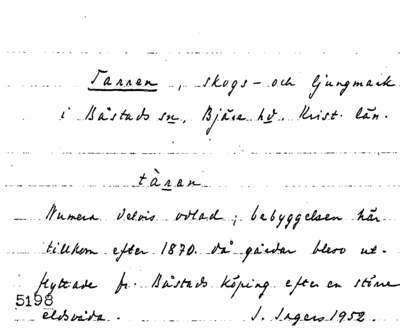 Tarren, skogs- och ljungmark
i Båstads sn, Bjäre hd. Krist. län.
tàran
Numera delvis odlad; bebyggelsen här
tillkom efter 1870. då gårdar blevo ut-
flyttade fr. Båstads köping efter en större
5198
eldsvåda. I. Ingers 1952.